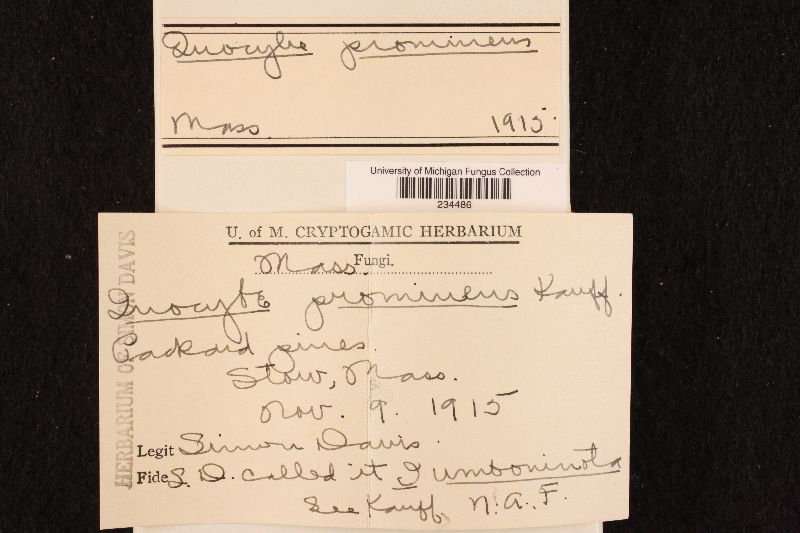 Inocybe prominens
Mass. 1915
University of Michigan Fungus Collection
234486
U. of M. CRYPTOGAMIC HERBARIUM
Mass. Fungi.
Inocybe prominens Kauff.
Packard pines.
Stow, Mass.
Nov. 9. 1915
Legit Simon Davis.
Fide S. D. called it I umboninota
See Kauff, N. A. F.
HERBARIUM OF SIMON DAVIS